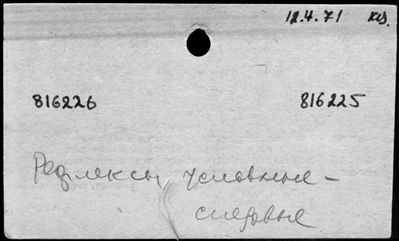 12.4.71
816226 816225
Рефлексы условные -
следовые